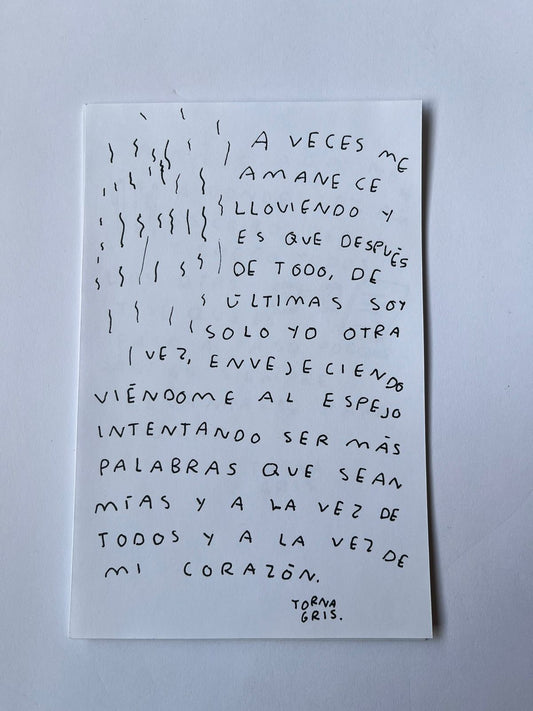 A VECES ME
AMANECE
LLOVIENDO Y
ES QUE DESPUÉS
DE TODO, DE
ÚLTIMAS SOY
SOLO YO OTRA
VEZ, ENVEJECIENDO
VIÉNDOME AL ESPEJO
INTENTANDO SER MÁS
PALABRAS QUE SEAN
MÍAS Y A LA VEZ DE
TODOS Y A LA VEZ DE
MI CORAZÓN.
TORNA
GRIS.